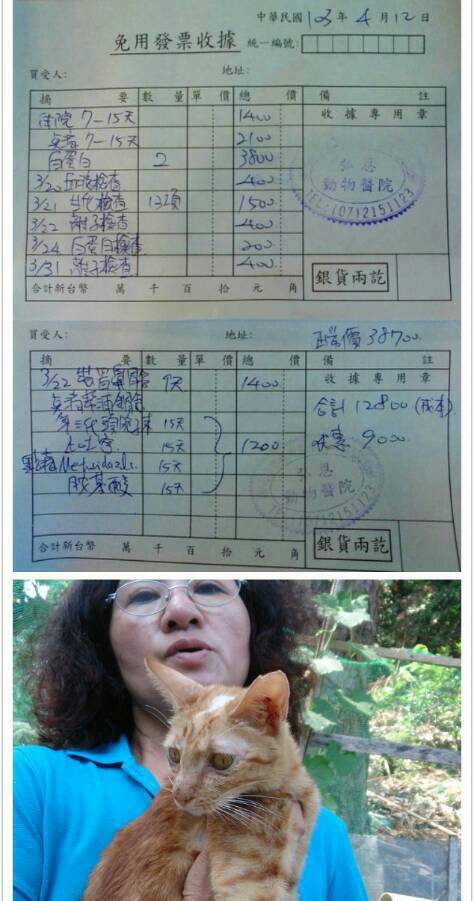 中華民國 103年 4月 12日
免用發票收據 統一編號:
買受人: 地址:
摘 要 數 量 單 價 總 價 備 註
住院 7-15天 1400 收據專用章
7-15天 2100
白蛋白 2 3800
3/20 血液檢查 400
3/21 生化檢查 13項 1500
3/22 離子檢查 400
3/24 白蛋白檢查 200
3/31 離子檢查 400
弘恩
動物醫院
TEL:(07)2151123
合計新台幣 萬 千 百 拾 元 角 銀貨兩訖
買受人: 地址: 38700
摘 要 數 量 單 價 總 價 備 註
3/22 裝置鼻胃管 9天 1400 收據專用章
合計 12800 (成本)
第三代 15天
止吐 15天 1200 優惠 9000
15天
胺基酸 15天
弘恩
動物醫院
TEL:(07)2151123
合計新台幣 萬 千 百 拾 元 角 銀貨兩訖